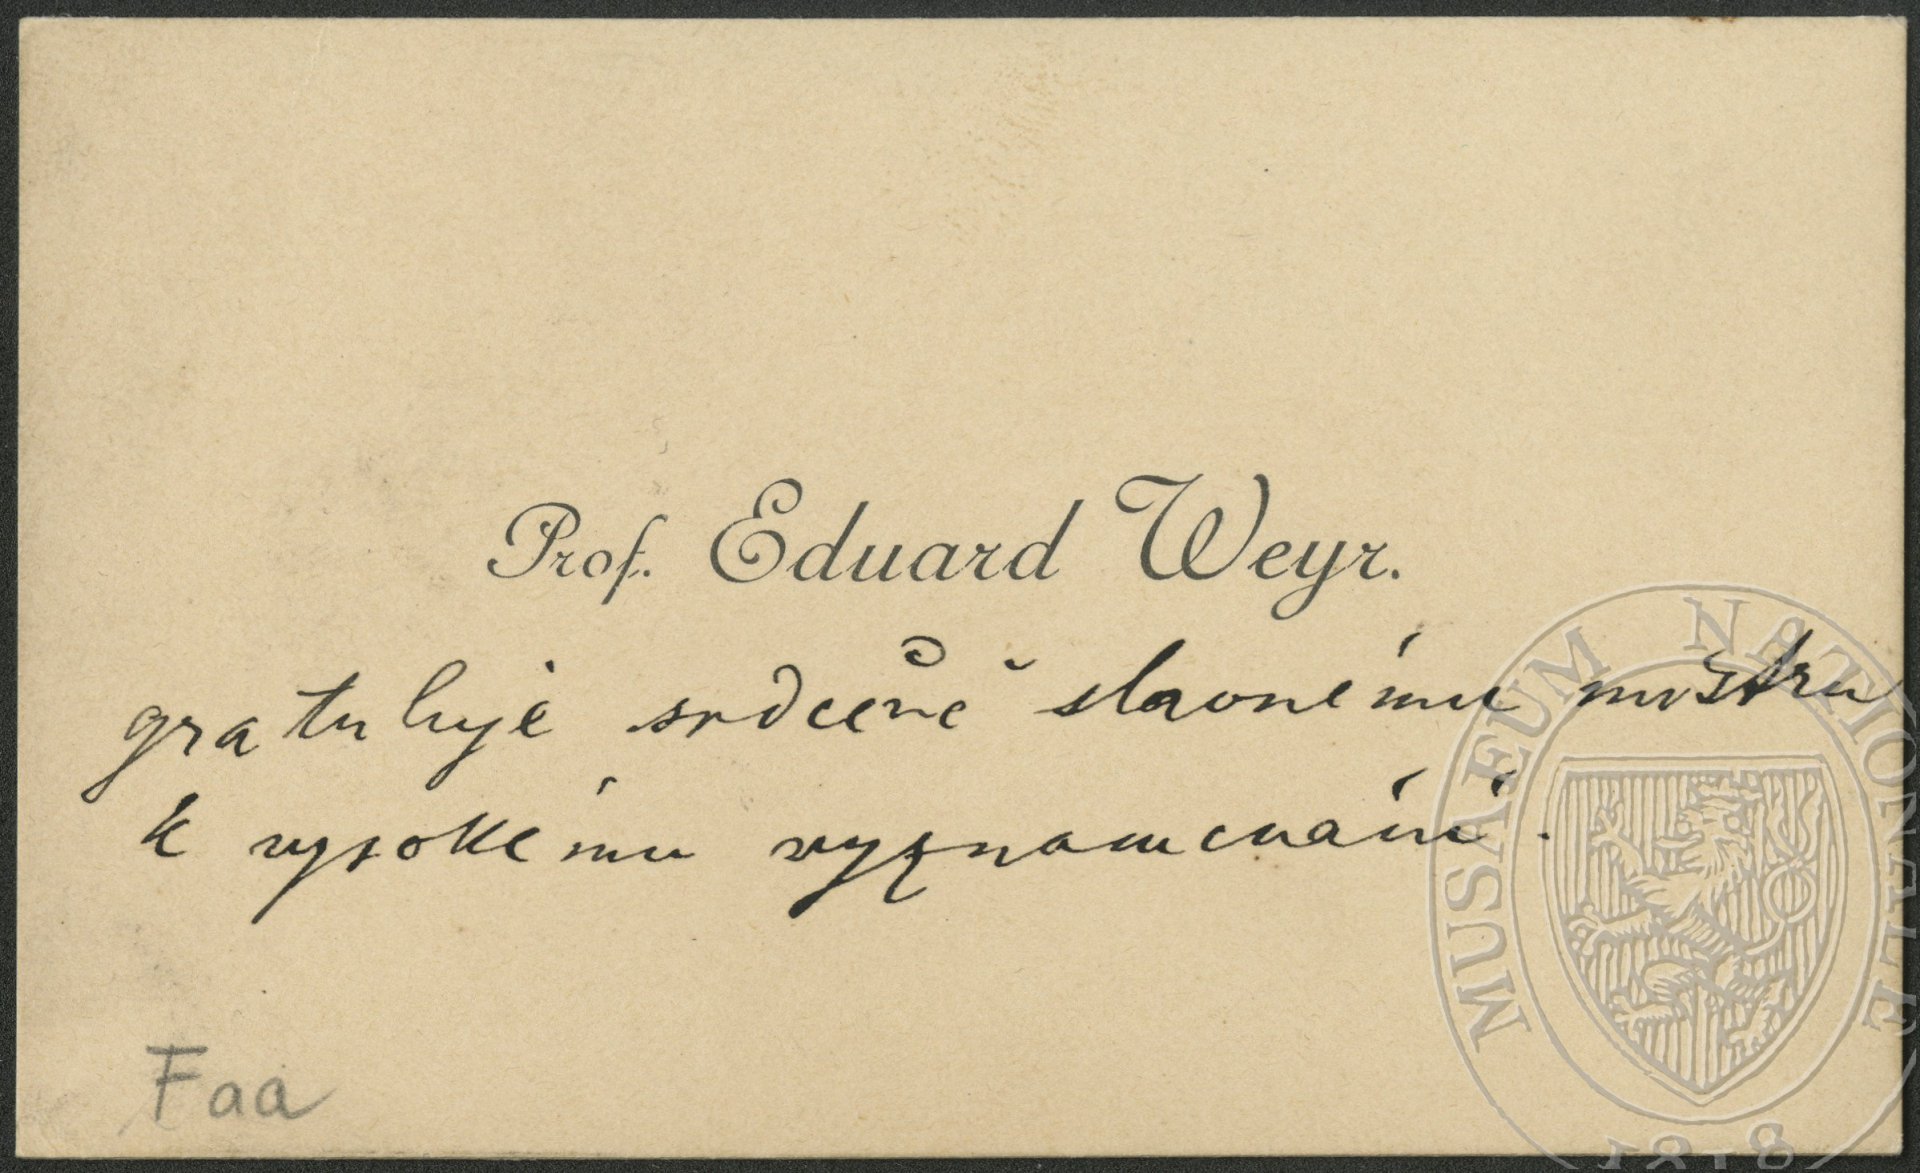 Prof. Eduard Weyr.
gratuluje srdečně slavnému mistru
k vysokému vyznamenání.
Faa
MUSAEUM NATIONALE
1818